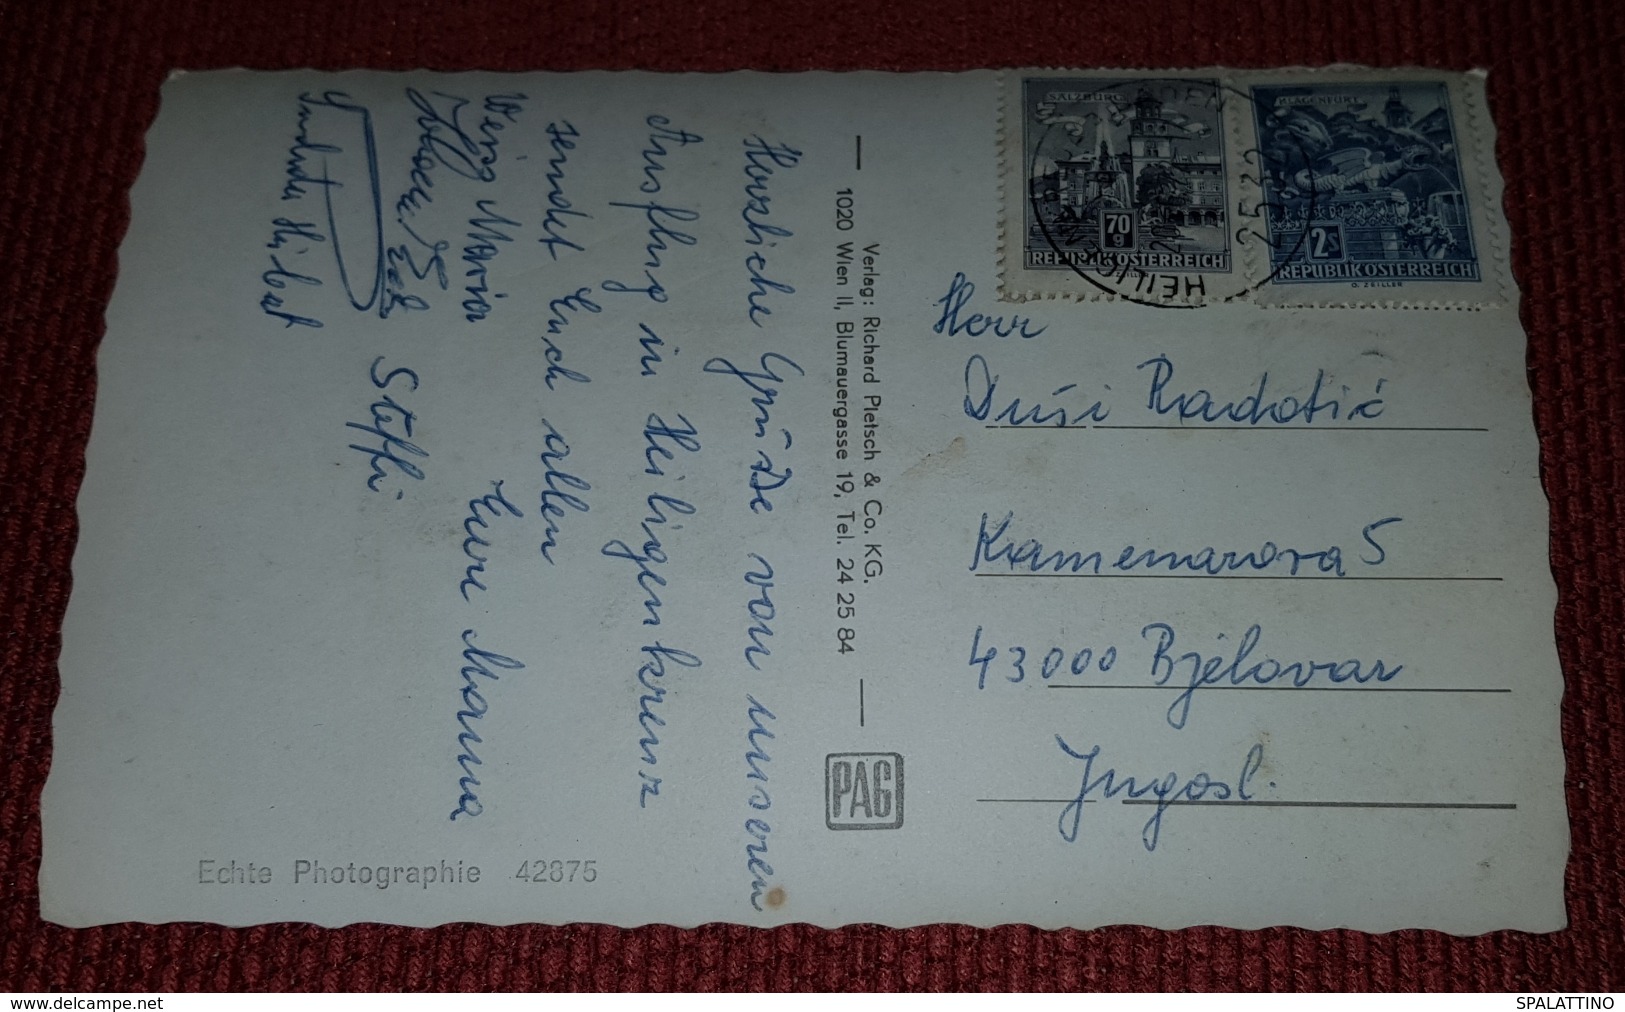 Herzliche Grüße von unseren
Ausflug in Heiligenkreuz
sendet Euch allen
Eure Mama
Maria
Steffi
Verlag: Richard Pietsch & Co. KG.
1020 Wien II, Blumauergasse 19, Tel. 24 25 84
PAG
Echte Photographie 42875
SALZBURG
70
g
REPUBLIK ÖSTERREICH
KLAGENFURT
2S
REPUBLIK ÖSTERREICH
O. ZEILLER
2522
Herr
Duši Radotić
Kamenarova 5
43000 Bjelovar
Jugosl.
www.delcampe.net
SPALATTINO